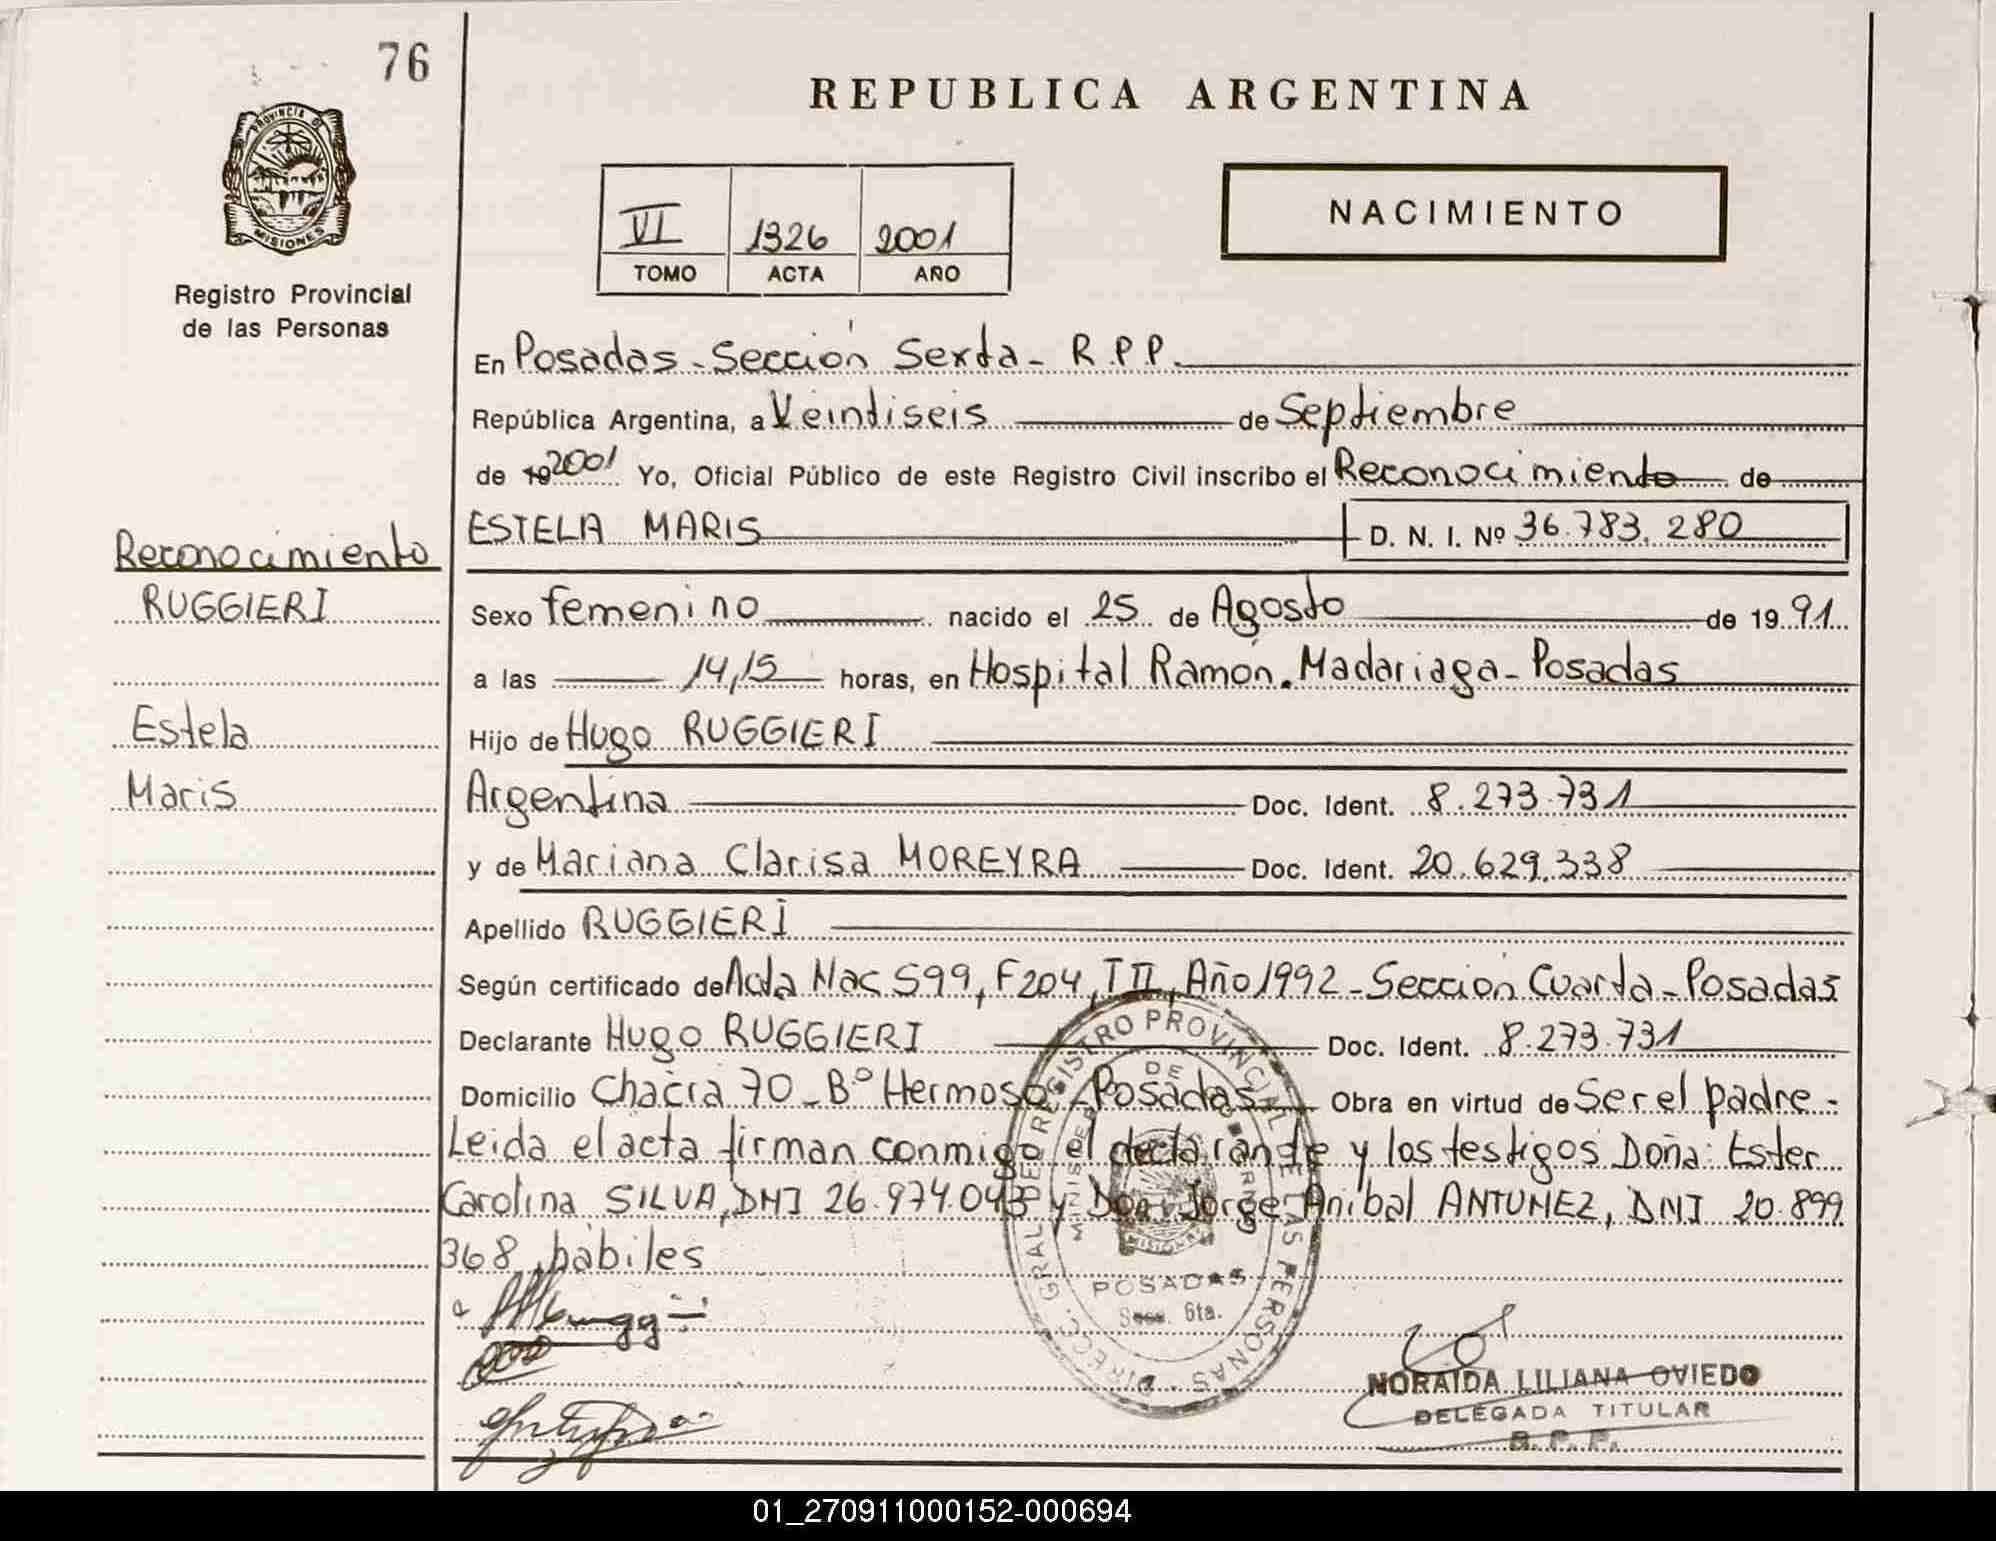 76
REPUBLICA ARGENTINA
PROVINCIA DE
MISIONES
Registro Provincial
de las Personas
VI 1326 2001
TOMO ACTA AÑO
NACIMIENTO
En Posadas - Sección Sexta - R.P.P.
República Argentina, a Veintiseis de Septiembre
de 19 2001 Yo, Oficial Público de este Registro Civil inscribo el Reconocimiento de
ESTELA MARIS D. N. I. Nº 36.783.280
Reconocimiento
RUGGIERI
Estela
Maris
Sexo femenino nacido el 25 de Agosto de 19 91
a las 14,15 horas, en Hospital Ramón Madariaga - Posadas
Hijo de Hugo RUGGIERI
Argentina Doc. Ident. 8.273.731
y de Mariana Clarisa MOREYRA Doc. Ident. 20.629.338
Apellido RUGGIERI
Según certificado de Acta Nac 599, F204, T II, Año 1992 - Sección Cuarta - Posadas
Declarante Hugo RUGGIERI Doc. Ident. 8.273.731
Domicilio Chacra 70 - Bº Hermoso - Posadas Obra en virtud de Ser el padre -
Leida el acta firman conmigo el declarante y los testigos Doña: Ester
Carolina SILVA, DNI 26.974.043 y Don: Jorge Anibal ANTUNEZ, DNI 20.899
368, habiles
DIRECC. GRAL DEL REGISTRO PROVINCIAL DE LAS PERSONAS
POSADAS
Secc. 6ta.
NORAIDA LILIANA OVIEDO
DELEGADA TITULAR
R. P. P.
01_270911000152-000694